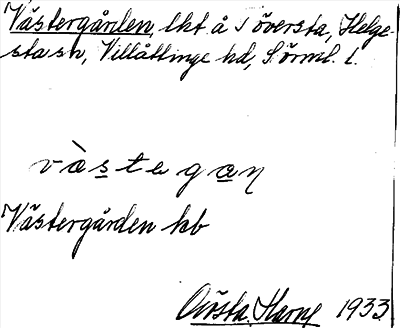 Västergården, lht å Översta, Helge-
sta sn, Villåttinge hd, Sörml. l.
v à s t e g a n
Västergården kb
1933